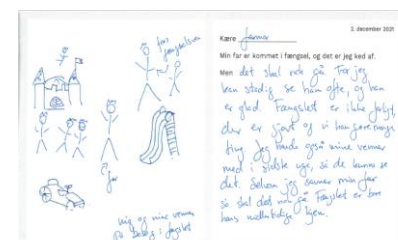 hans
fængselsven
far
mig og mine venner
på besøg i fængslet
2. december 2021
Kære farmor
Min far er kommet i fængsel, og det er jeg ked af.
Men det skal nok gå, for jeg
kan stadig se ham ofte, og han
er glad. Fængslet er ikke farligt,
der er sjovt og vi kan lave mange
ting. Jeg havde også mine venner
med i sidste uge, så de kunne se
det. Selvom jeg savner min far
så skal det nok gå. Fængslet er bare
hans midlertidige hjem.